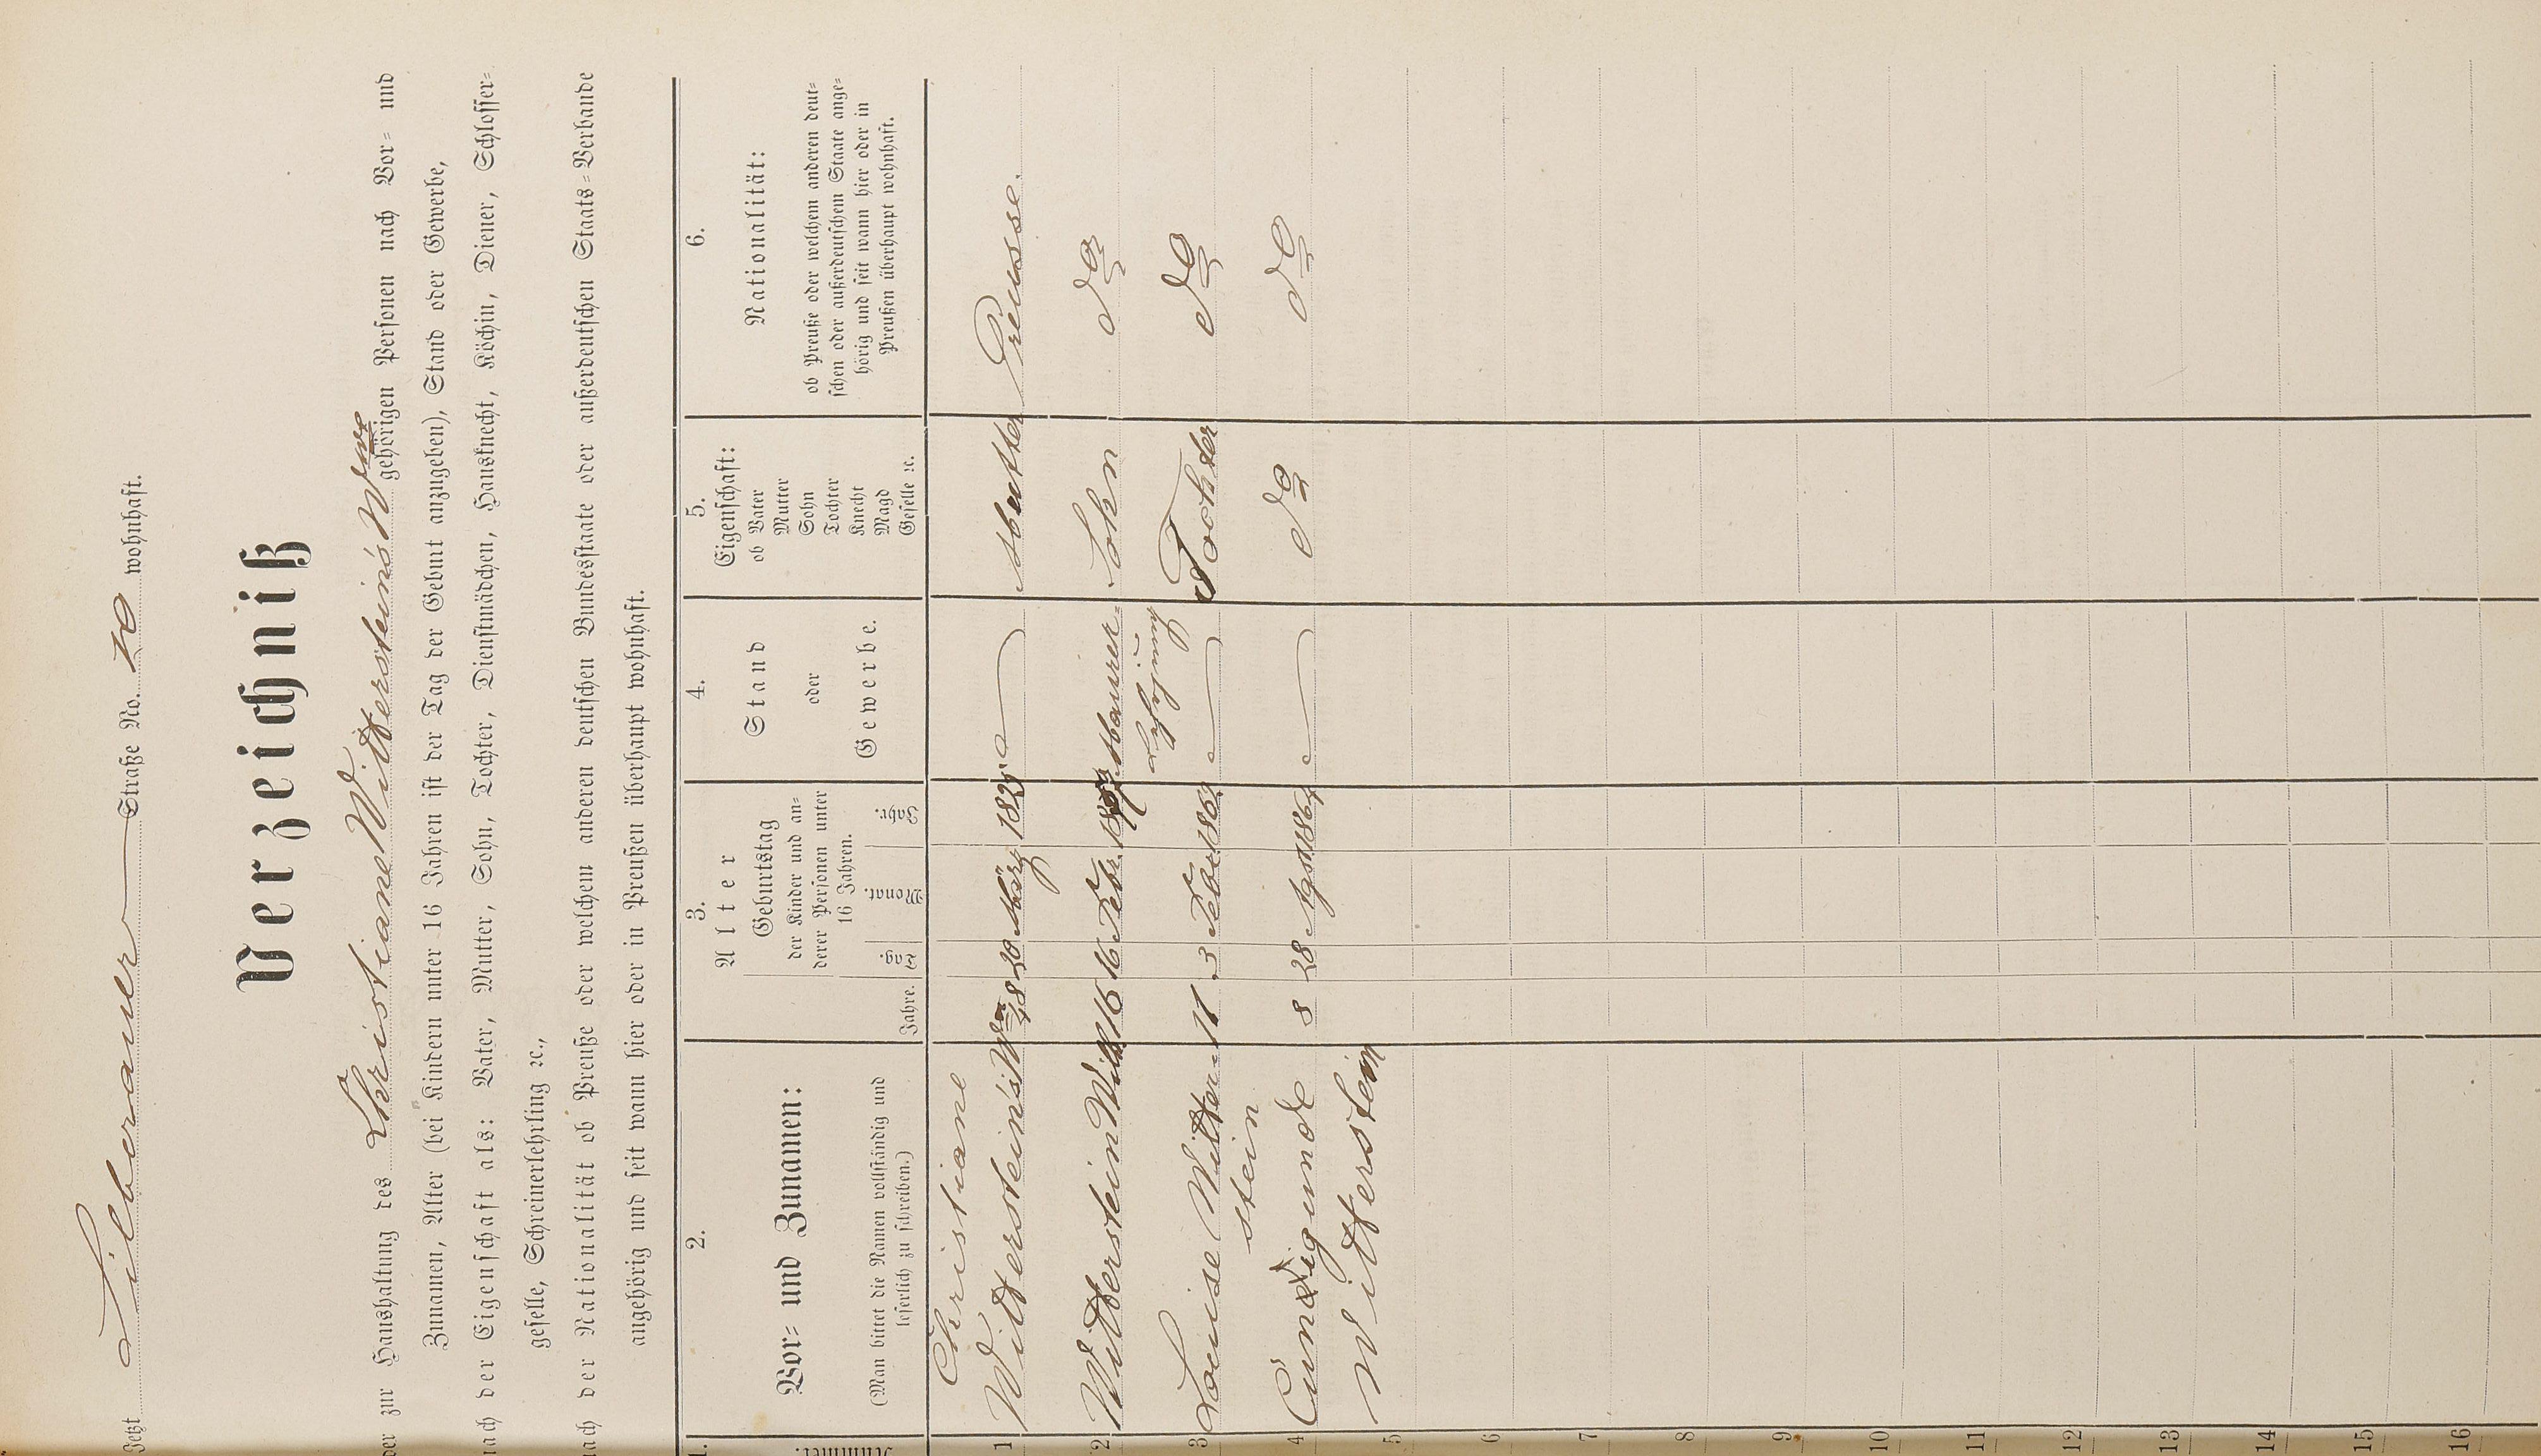 Jetzt Silberauer Straße No. 10 wohnhaft.
Verzeichniß
der zur Haushaltung des Christiane Wittersteins Wwe gehörigen Personen nach Vor= und
Zunamen, Alter (bei Kindern unter 16 Jahren ist der Tag der Geburt anzugeben), Stand oder Gewerbe,
nach der Eigenschaft als: Vater, Mutter, Sohn, Tochter, Dienstmädchen, Hausknecht, Köchin, Diener, Schlosser=
geselle, Schreinerlehrling ꝛc.,
nach der Nationalität ob Preuße oder welchem anderen deutschen Bundesstaate oder außerdeutschen Staats=Verbande
angehörig und seit wann hier oder in Preußen überhaupt wohnhaft.
1.
Nummer.
2.
Vor= und Zunamen:
(Man bittet die Namen vollständig und
leserlich zu schreiben.)
3.
Alter
Geburtstag
der Kinder und an=
derer Personen unter
16 Jahren.
Jahre. Tag. Monat. Jahr.
4.
Stand
oder
Gewerbe.
5.
Eigenschaft:
ob Vater
Mutter
Sohn
Tochter
Knecht
Magd
Geselle ꝛc.
6.
Nationalität:
ob Preuße oder welchem anderen deut=
schen oder außerdeutschem Staate ange=
hörig und seit wann hier oder in
Preußen überhaupt wohnhaft.
Christiane
1 Wittersteins Wwe 48 20 März 1825 Mutter Preusse.
2 Witterstein Wilh 16 16 Febr. Maurer= Sohn do
3 Louise Witter= 11 3 Febr. Tochter do
stein
4 Cunigunde 8 28 Agst do do
5 Witterstein
6
7
8
9
10
11
12
13
14
15
16